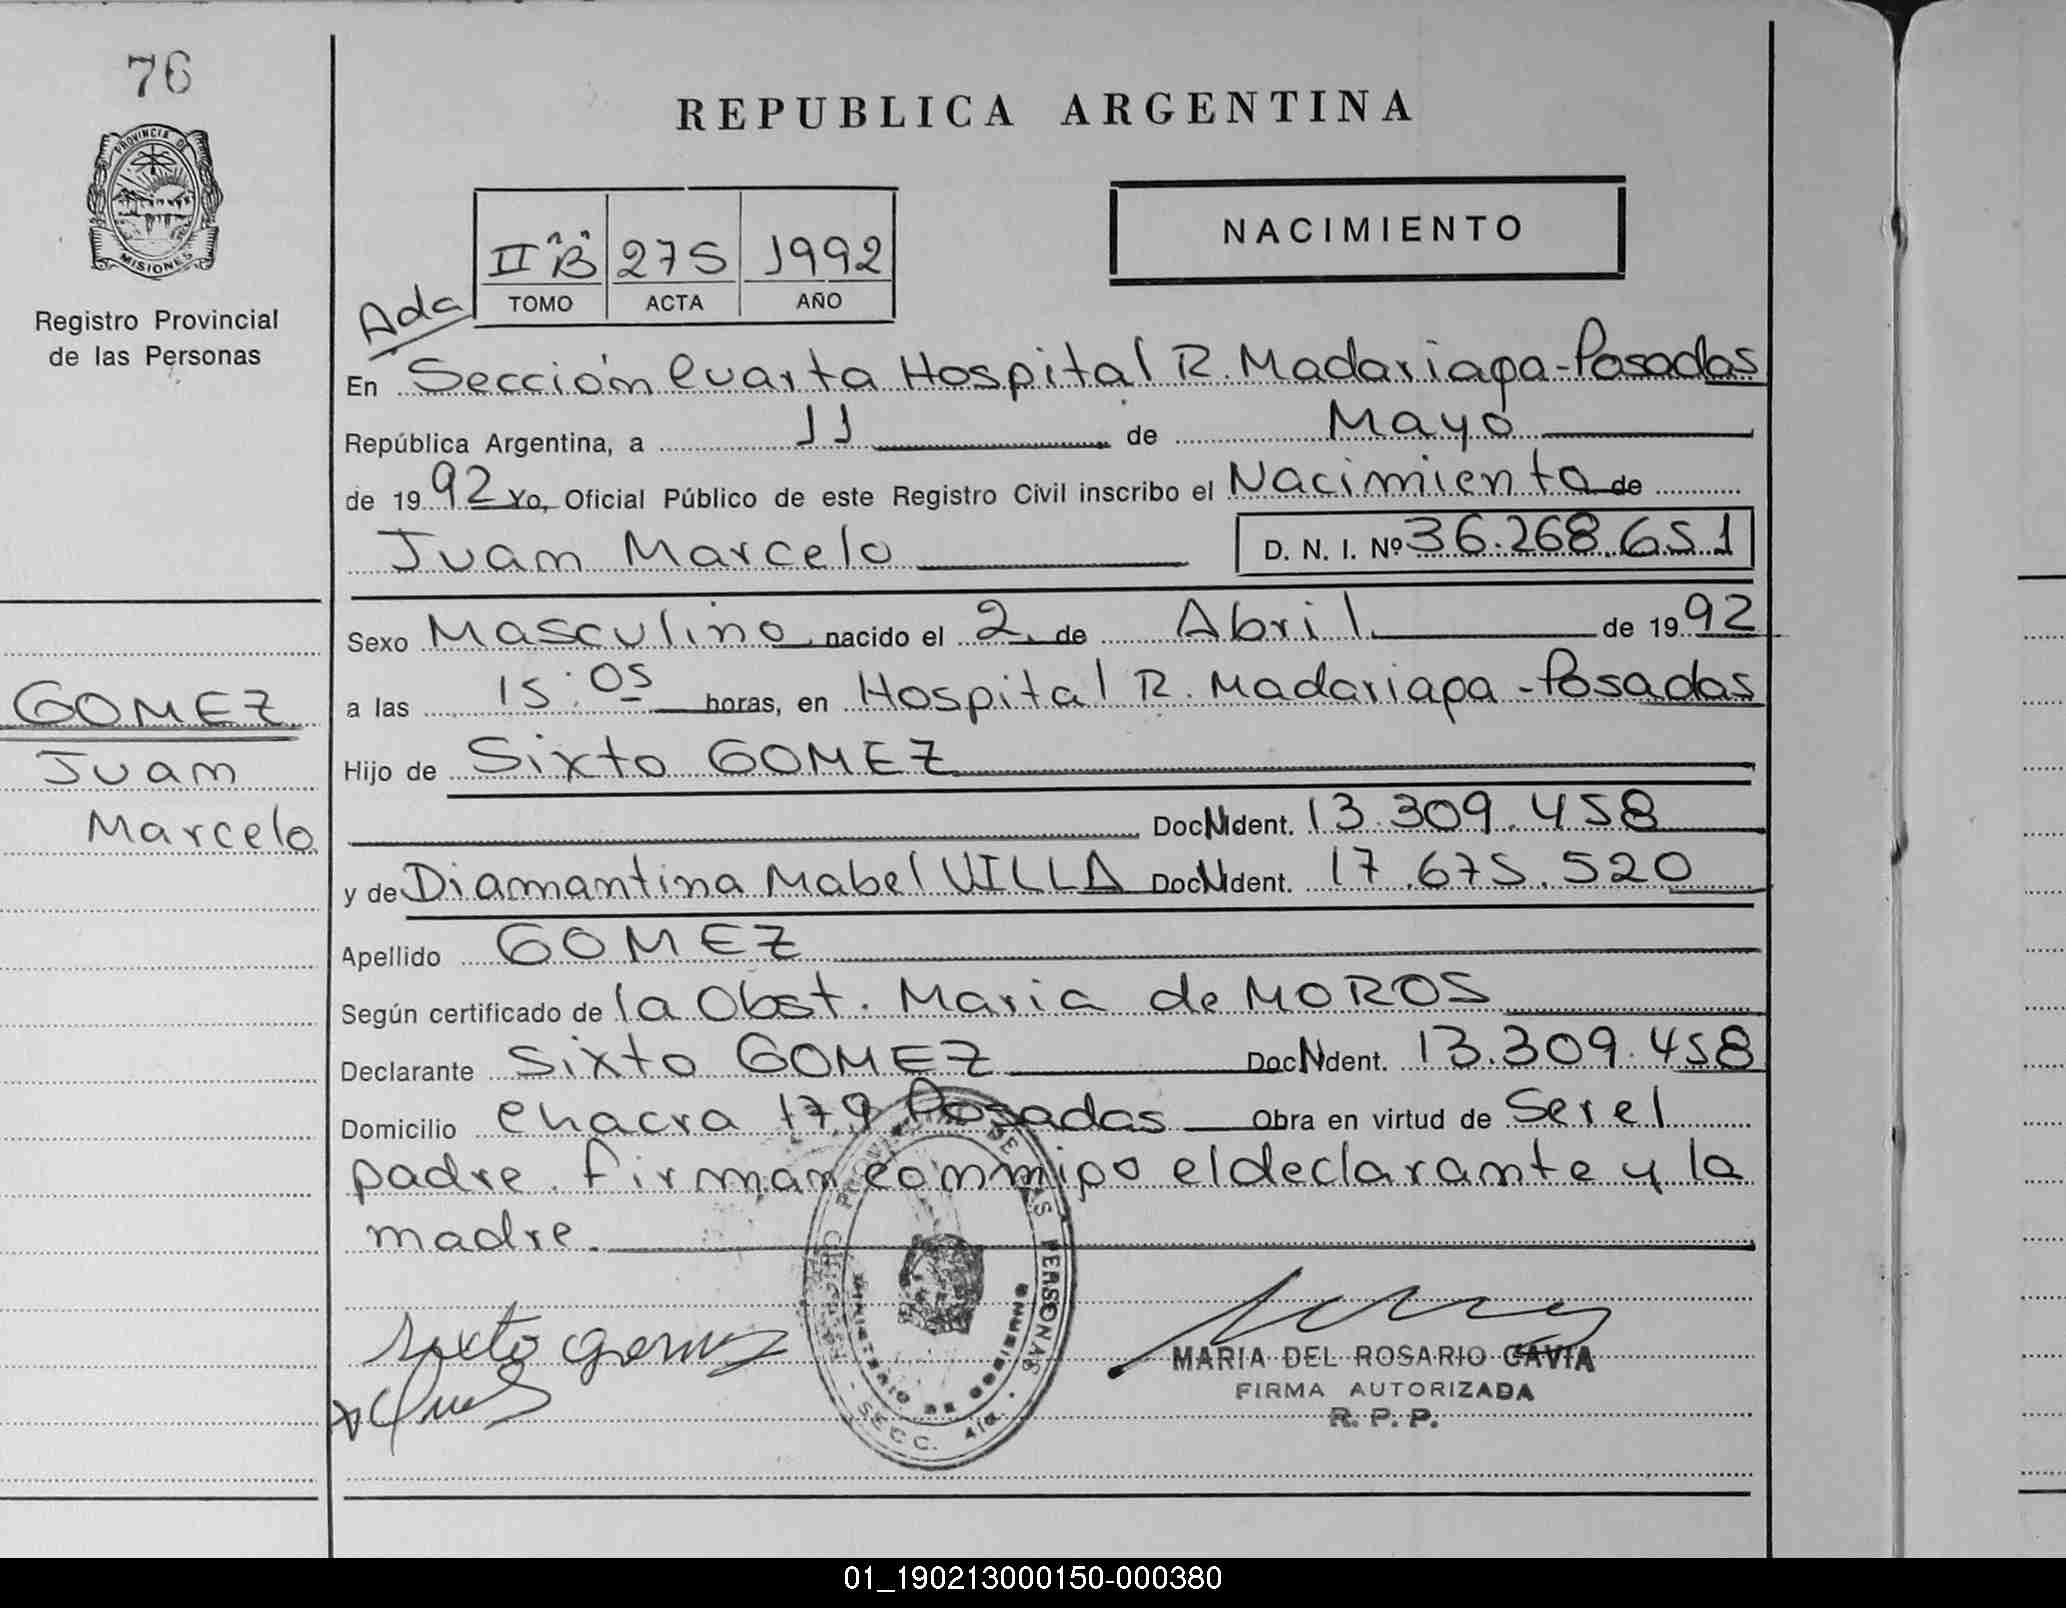 76
PROVINCIA DE
MISIONES
Registro Provincial
de las Personas
REPUBLICA ARGENTINA
NACIMIENTO
II "B" 275 1992
TOMO ACTA AÑO
Ada
En Sección Cuarta Hospital R. Madariaga - Posadas
República Argentina, a 11 de Mayo
de 1992 Yo, Oficial Público de este Registro Civil inscribo el Nacimiento de
Juan Marcelo D. N. I. Nº 36.268.651
Sexo Masculino nacido el 2 de Abril de 1992
a las 15:05 horas, en Hospital R. Madariaga - Posadas
Hijo de Sixto GOMEZ
Doc N Ident. 13.309.458
y de Diamantina Mabel VILLA Doc N Ident. 17.675.520
Apellido GOMEZ
Según certificado de la Obst. Maria de MOROS
Declarante Sixto GOMEZ Doc N Ident. 13.309.458
Domicilio Chacra 179 Posadas Obra en virtud de Ser el
padre. Firman conmigo el declarante y la
madre.
GOMEZ
Juan
Marcelo
Sixto Gomez
REGISTRO PROVINCIAL DE LAS PERSONAS
MINISTERIO DE GOBIERNO
SECC. 4ta.
MARIA DEL ROSARIO GAVIA
FIRMA AUTORIZADA
R. P. P.
01_190213000150-000380